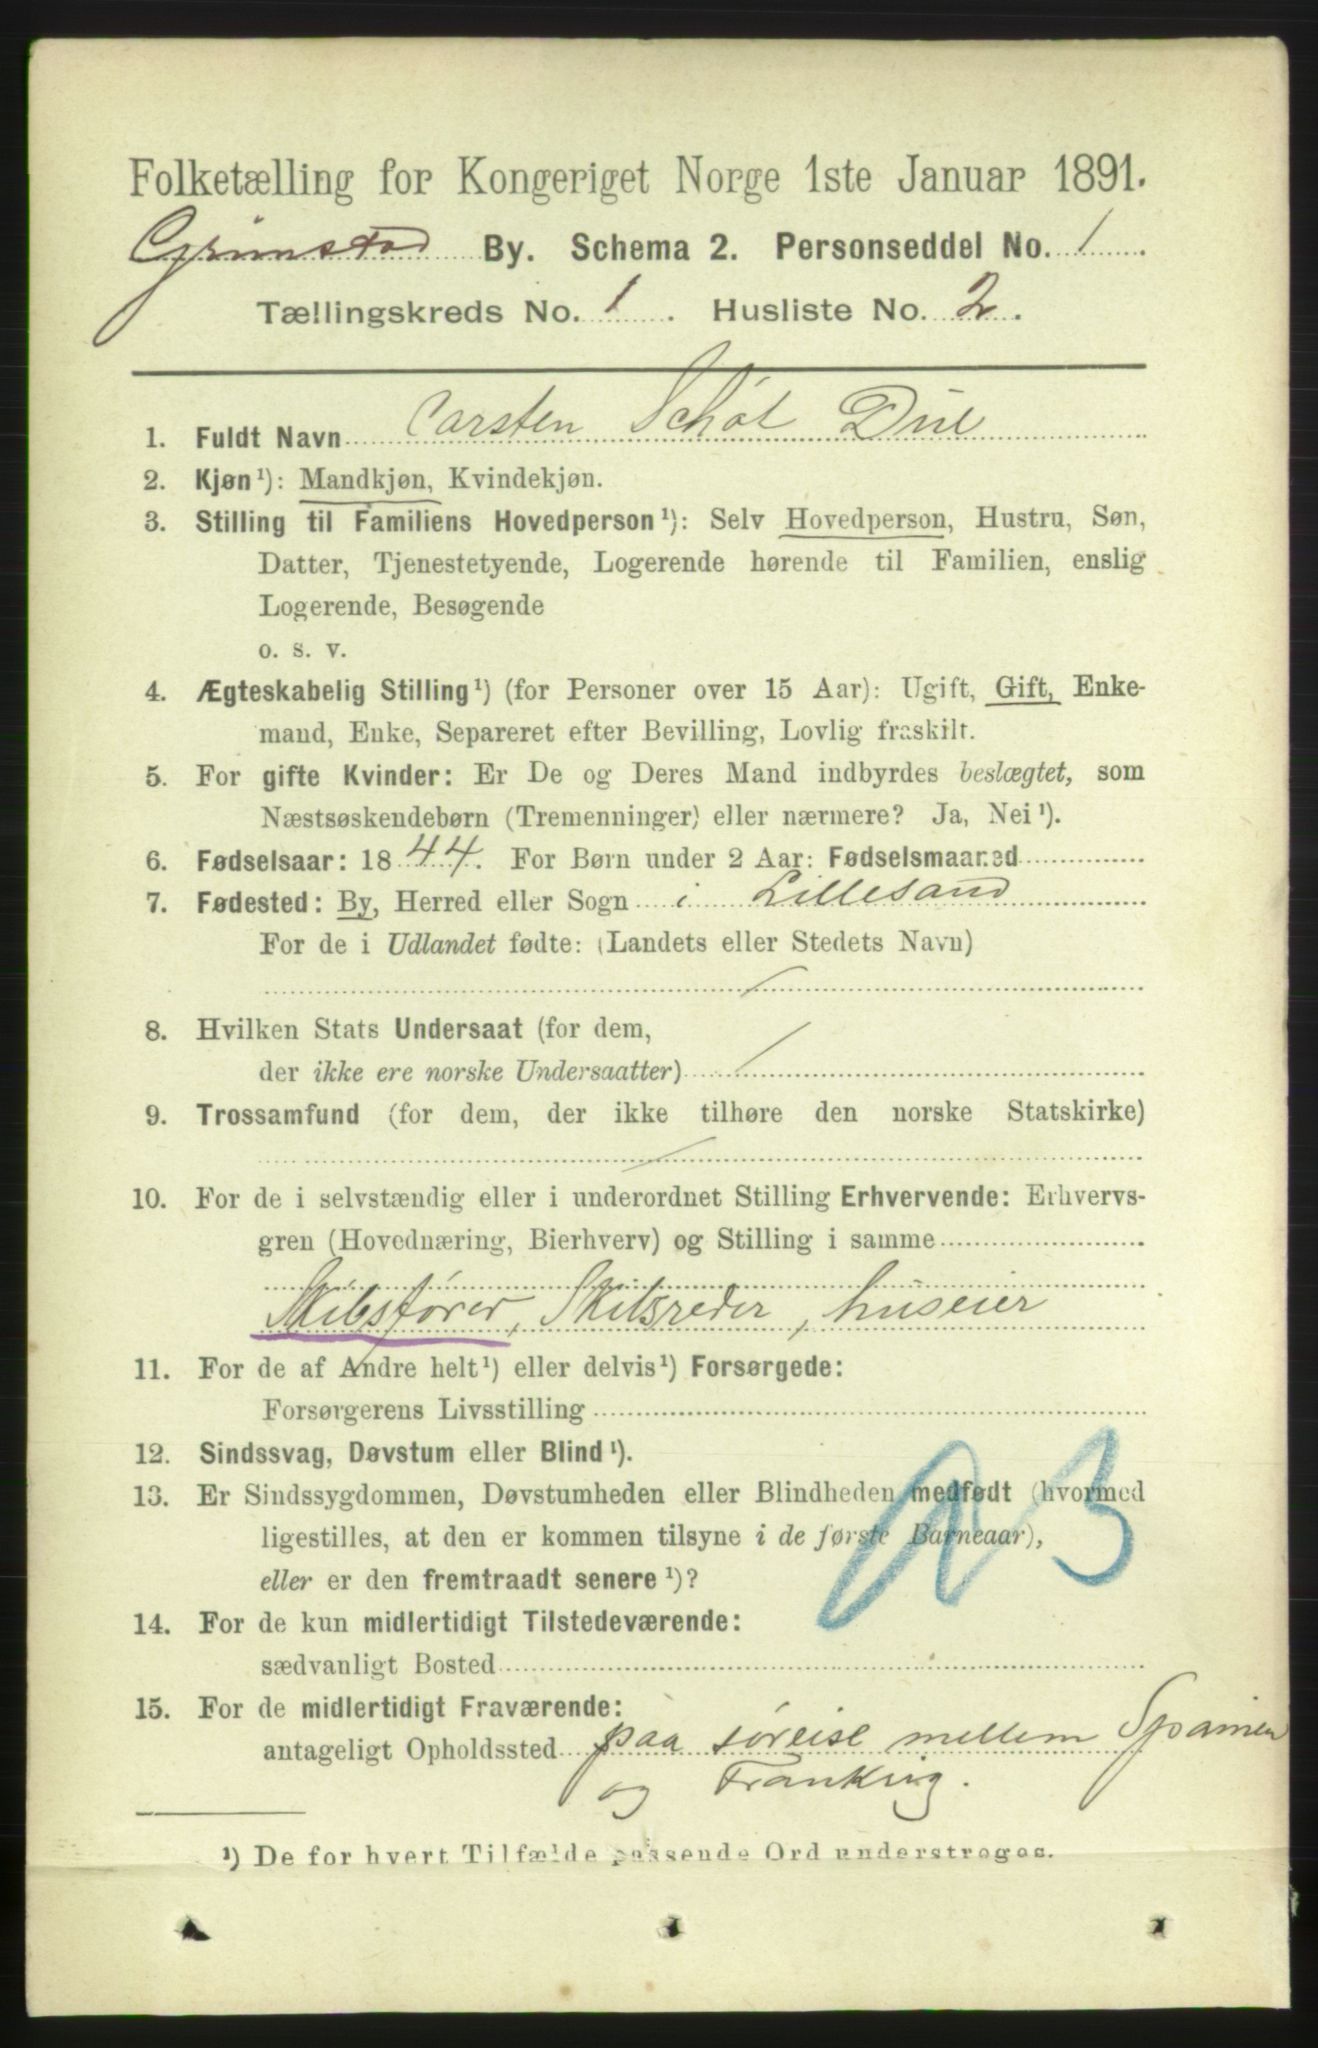 Folketælling for Kongeriget Norge 1ste Januar 1891.
Grimstad By. Schema 2. Personseddel No. 1.
Tællingskreds No. 1. Husliste No. 2.
1. Fuldt Navn Carsten Schøt Due
2. Kjøn¹): Mandkjøn, Kvindekjøn.
3. Stilling til Familiens Hovedperson¹): Selv Hovedperson, Hustru, Søn,
Datter, Tjenestetyende, Logerende hørende til Familien, enslig
Logerende, Besøgende
o. s. v.
4. Ægteskabelig Stilling¹) (for Personer over 15 Aar): Ugift, Gift, Enke-
mand, Enke, Separeret efter Bevilling, Lovlig fraskilt.
5. For gifte Kvinder: Er De og Deres Mand indbyrdes beslægtet, som
Næstsøskendebørn (Tremenninger) eller nærmere? Ja, Nei¹).
6. Fødselsaar: 1844. For Børn under 2 Aar: Fødselsmaaned
7. Fødested: By, Herred eller Sogn i Lillesand
For de i Udlandet fødte: (Landets eller Stedets Navn)
8. Hvilken Stats Undersaat (for dem,
der ikke ere norske Undersaatter)
9. Trossamfund (for dem, der ikke tilhøre den norske Statskirke)
10. For de i selvstændig eller i underordnet Stilling Erhvervende: Erhvervs-
gren (Hovednæring, Bierhverv) og Stilling i samme
Skibsfører, Skibsreder, huseier
11. For de af Andre helt¹) eller delvis¹) Forsørgede:
Forsørgerens Livsstilling
12. Sindssvag, Døvstum eller Blind¹).
13. Er Sindssygdommen, Døvstumheden eller Blindheden medfødt (hvormed
ligestilles, at den er kommen tilsyne i de første Barneaar),
eller er den fremtraadt senere¹)?
14. For de kun midlertidigt Tilstedeværende:
sædvanligt Bosted
15. For de midlertidigt Fraværende:
antageligt Opholdssted paa søreise mellem Spanien
og Frankrig.
¹) De for hvert Tilfælde passende Ord understreges.